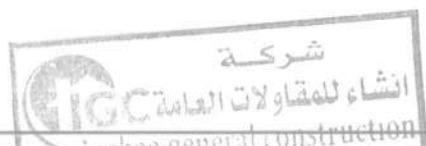 شركة
انشاء للمقاولات العامة
IGC
general construction